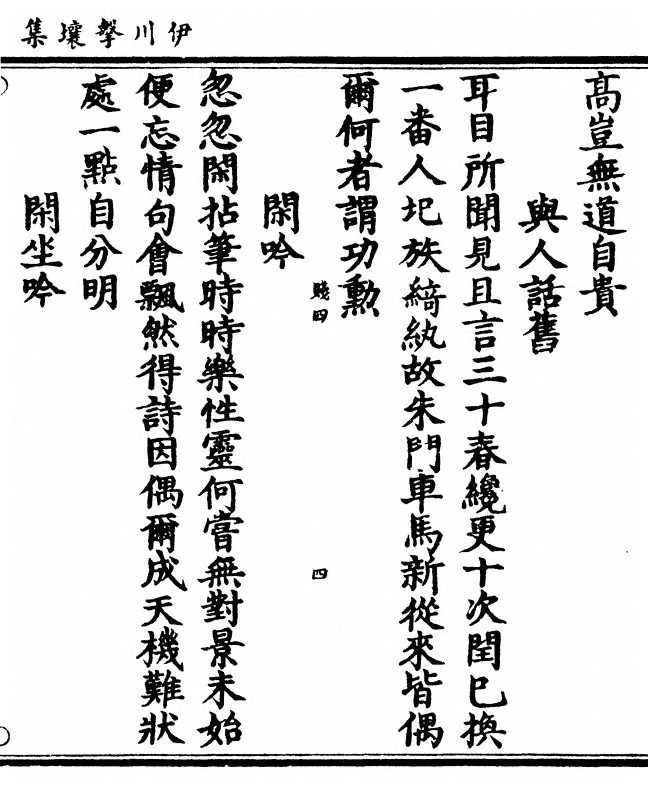 伊川擊壤集
高豈無道自貴
與人話舊
耳目所聞見且言三十春纔更十次閏已換
一番人圯族綺紈故朱門車馬新從來皆偶
爾何者謂功勳
賤四
四
閑吟
忽忽閑拈筆時時樂性靈何嘗無對景未始
便忘情句會飄然得詩因偶爾成天機難狀
處一點自分明
閑坐吟